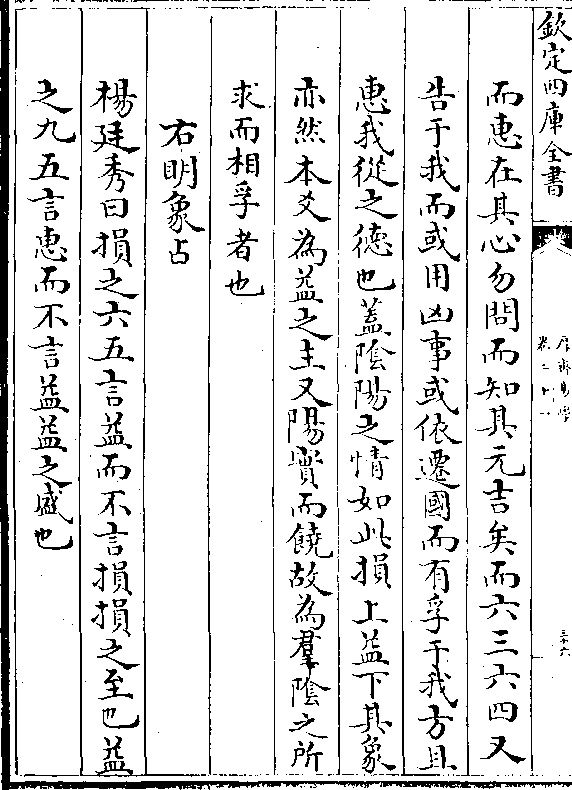 欽定四庫全書
厚齋易學
卷二十一
三六
而惠在其心勿問而知其元吉矣而六三六四又
告于我而或用凶事或依遷國而有孚于我方且
惠我從之德也蓋陰陽之情如此損上益下其象
亦然本爻為益之主又陽實而饒故為羣陰之所
求而相孚者也
右明象占
楊廷秀曰損之六五言益而不言損損之至也益
之九五言惠而不言益益之盛也